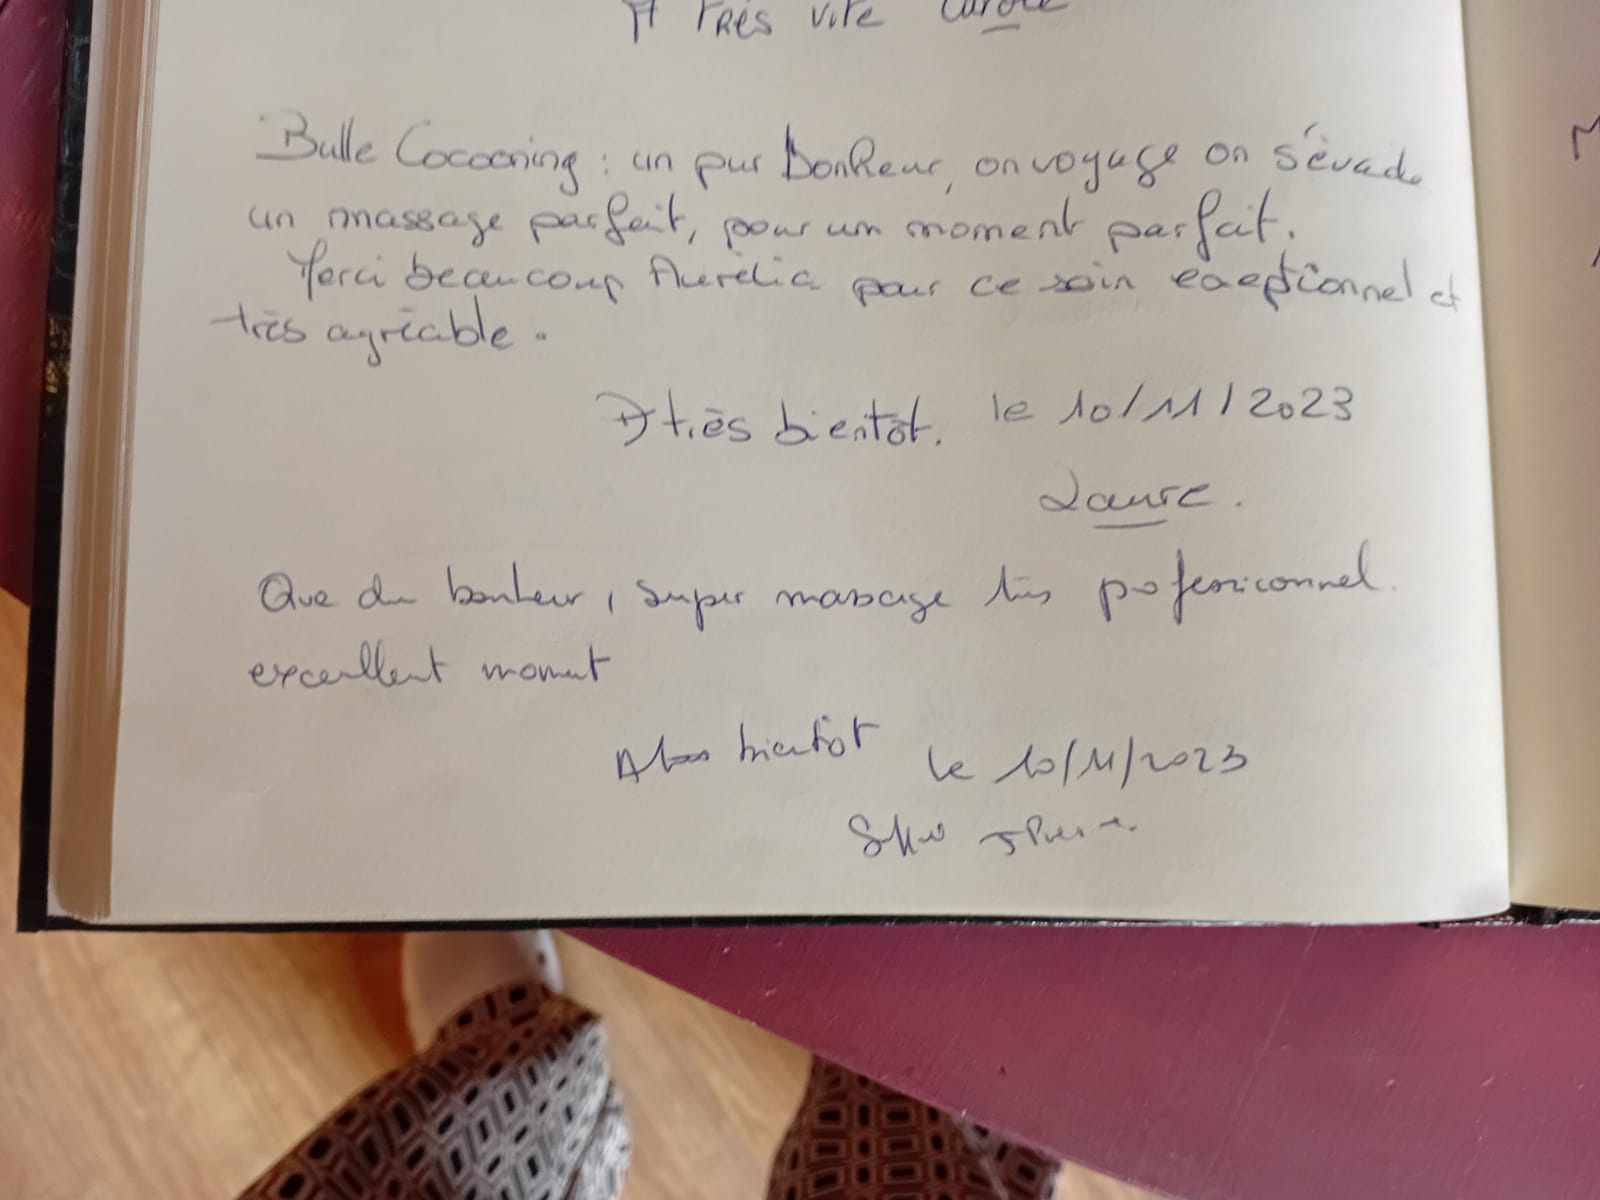 A TRÈS VITE Carole
Bulle Cocooning : un pur bonheur, on voyage on s'évade
un massage parfait, pour un moment parfait.
Merci beaucoup Aurélia pour ce soin exceptionnel et
très agréable.
A très bientôt. le 10/11/2023
Laure.
Que du bonheur, super massage très professionnel.
excellent moment
A bientôt le 10/11/2023